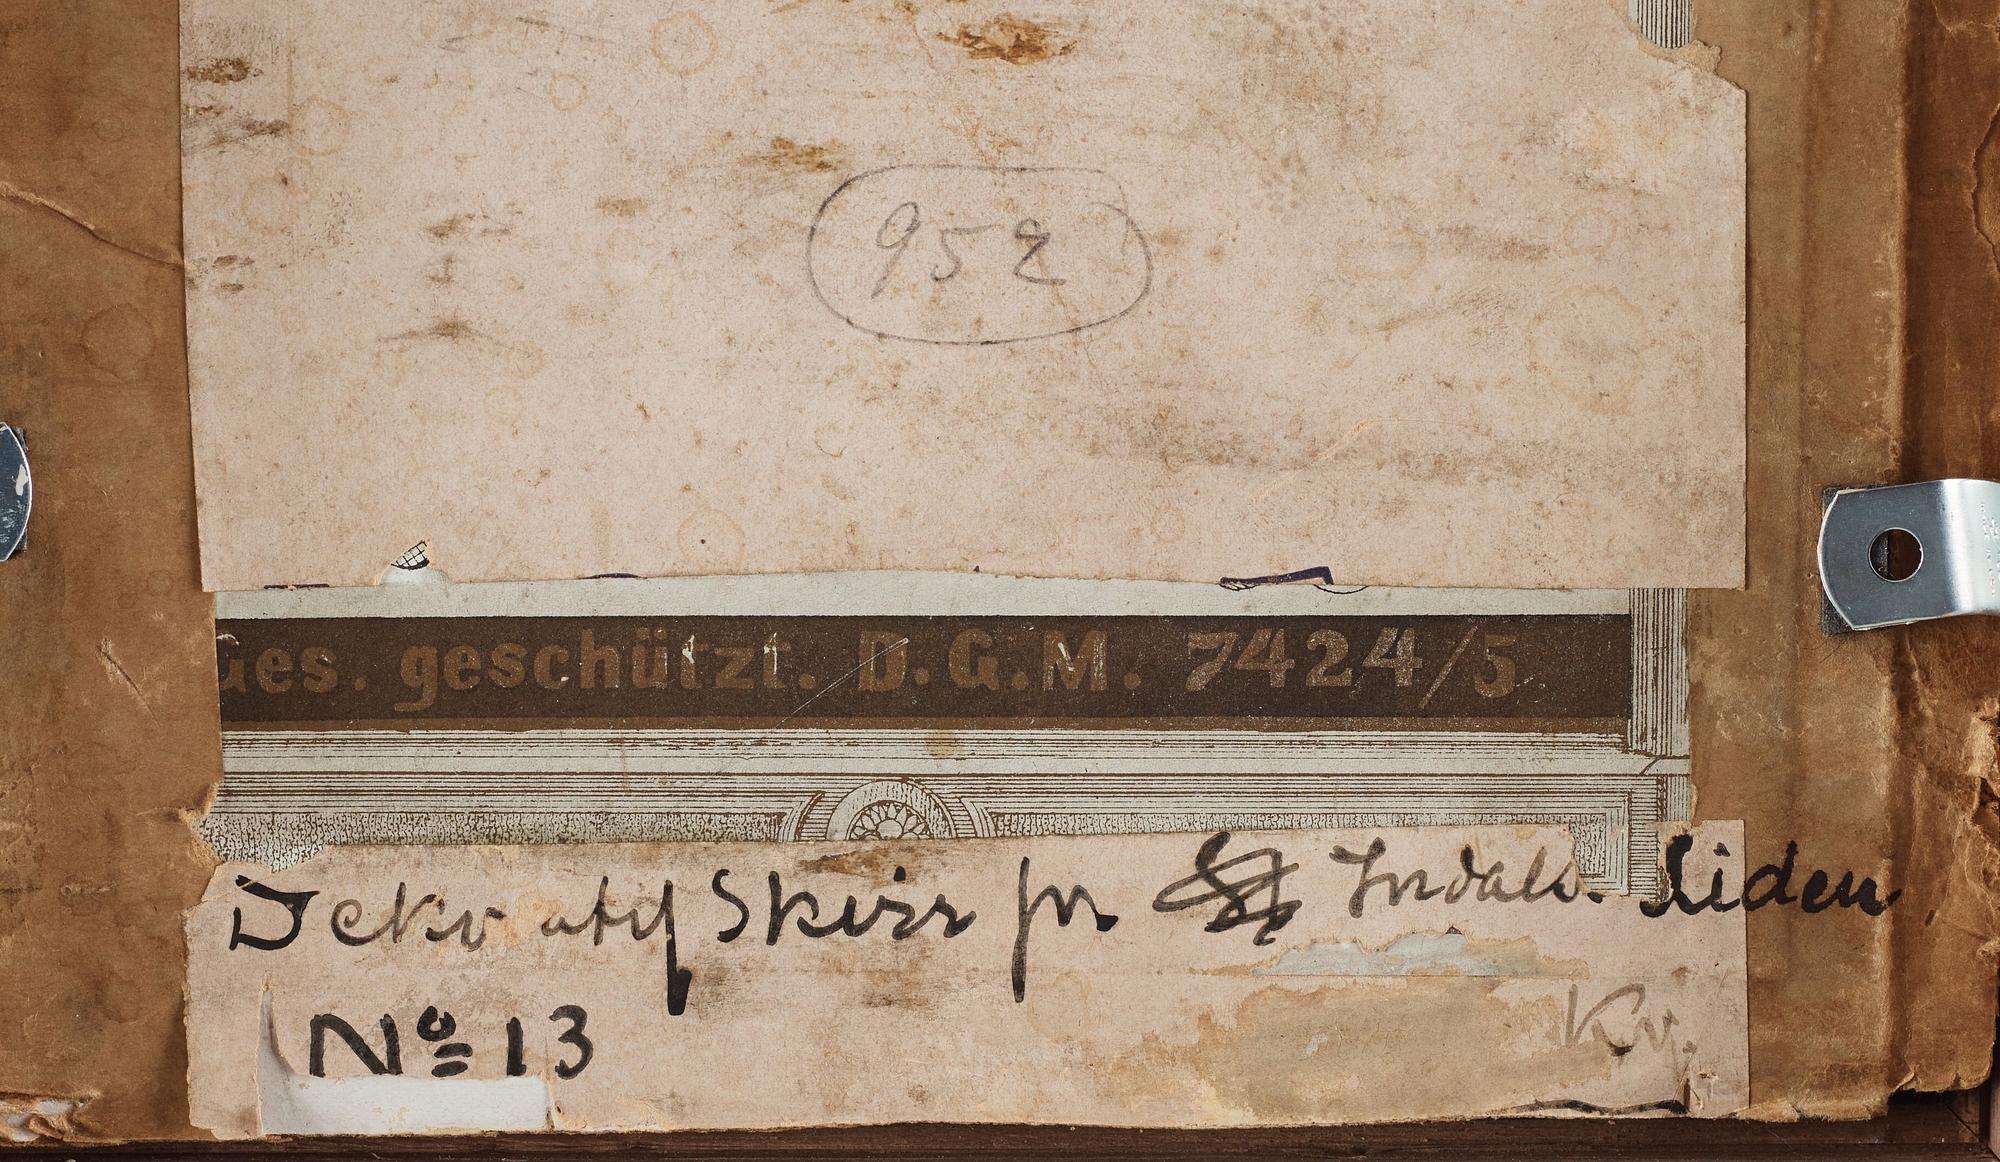 952
Ges. geschützt. D.G.M. 7424/5
Dekorativ Skizz för Indals. Liden
Nº 13
Ky.